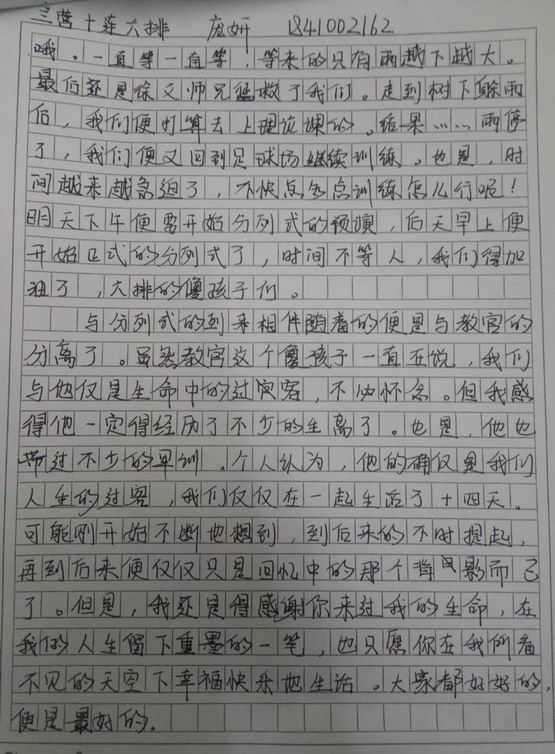 三营十连六排 庞妍 1841002162
哦。一直等一直等,等来的只有雨越下越大。
最后还是徐文师兄拯救了我们。走到树下躲雨
后,我们便打算去上理论课的。结果……雨停
了,我们便又回到足球场继续训练。也是,时
间越来越急迫了,不快点多点训练怎么行呢!
明天下午便要开始分列式的预演,后天早上便
开始正式的分列式了,时间不等人,我们得加
油了,六排的傻孩子们。
与分列式的到来相伴随着的便是与教官的
分离了。虽然教官这个傻孩子一直在说,我们
与他仅是生命中的过客,不必怀念。但我感
得他一定得经历了不少的生离了。也是,他也
带过不少的军训。个人认为,他的确仅是我们
人生的过客,我们仅仅在一起生活了十四天。
可能刚开始不断地想到,到后来的不时提起,
再到后来便仅仅只是回忆中的那个背影而已
了。但是,我还是得感谢你来过我的生命,在
我的人生留下重墨的一笔,也只愿你在我所看
不见的天空下幸福快乐地生活。大家都好好的,
便是最好的。